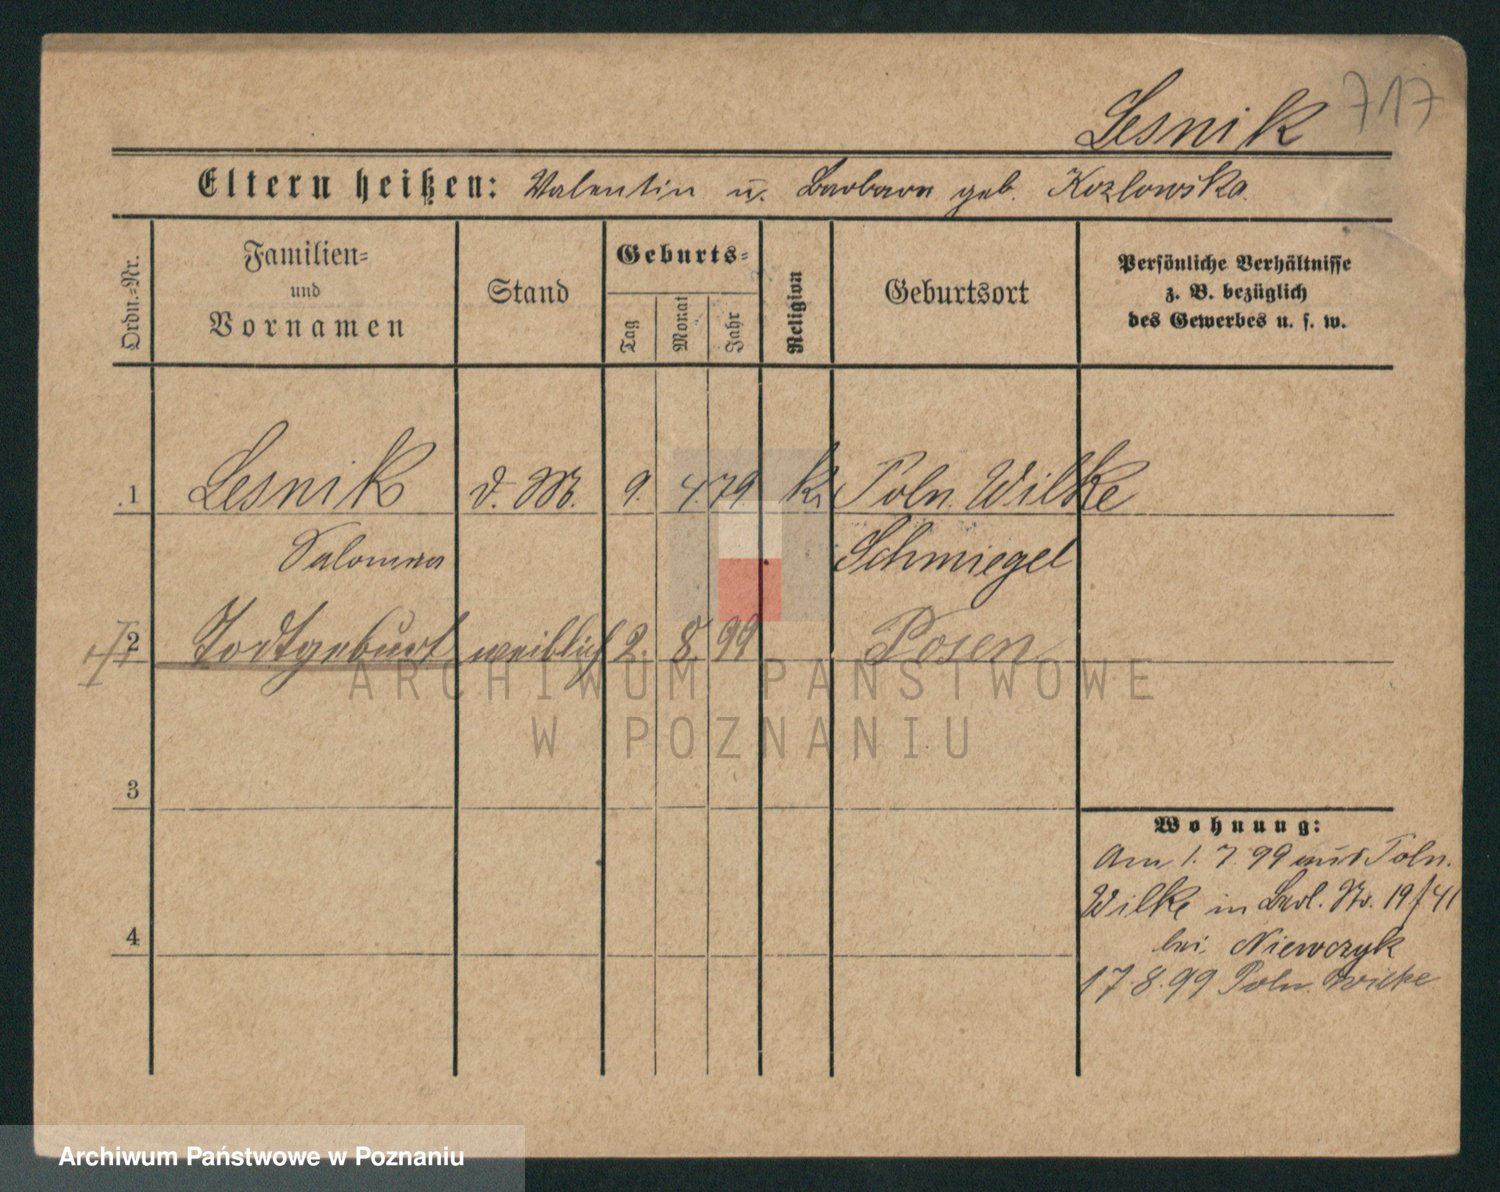 Lesnik 717
Eltern heißen: Valentin u. Barbara geb. Kozlowska.
Ordn.-Nr.
Familien-
und
Vornamen
Stand
Geburts-
Tag
Monat
Jahr
Religion
Geburtsort
Persönliche Verhältnisse
z. B. bezüglich
des Gewerbes u. s. w.
1 Lesnik d. M. 9. 4. 79. k. Poln. Wilke
Salomea Schmiegel
2 Todtgeburt weiblich 2. 8. 99 Posen
ARCHIWUM PAŃSTWOWE
W POZNANIU
3
Wohnung:
Am 1. 7. 99 aus Poln.
Wilke in Berl. Str. 19/41
4
bei Niewczyk
17.8.99 Poln. Wilke
Archiwum Państwowe w Poznaniu